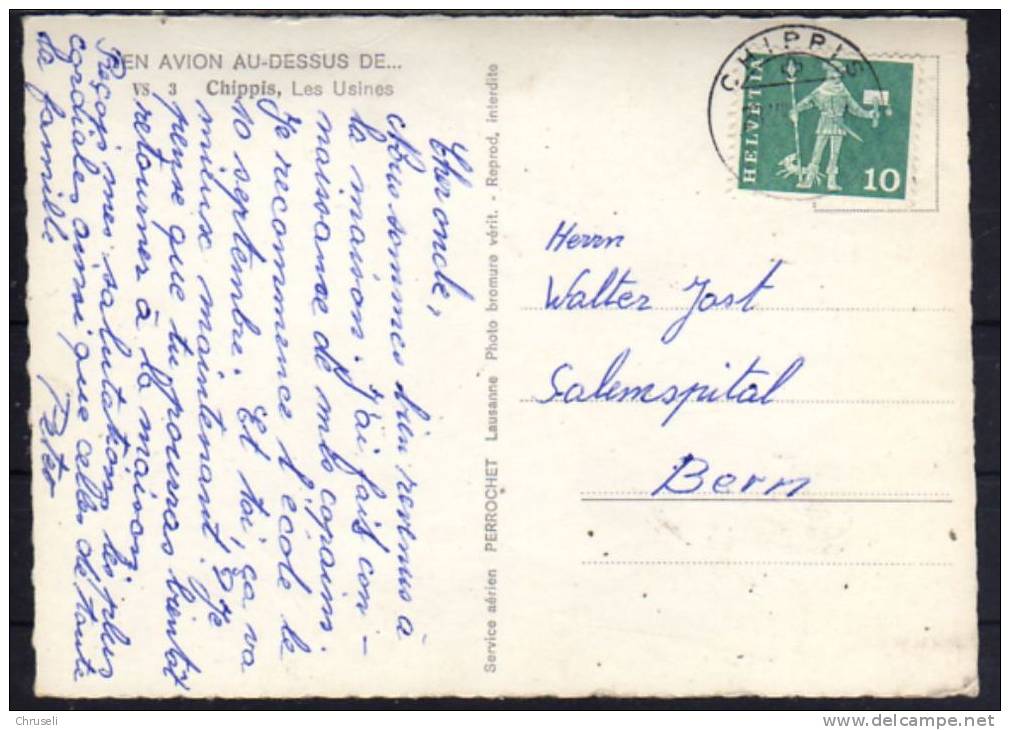 EN AVION AU-DESSUS DE...
VS. 3 Chippis, Les Usines
Nous sommes bien revenus à
la maison. J'ai fait con-
naissance de mes copains.
Je recommence l'école le
10 septembre. Et toi, ça va
mieux maintenant? Je
pense que tu pourras bientôt
retourner à la maison.
Reçois mes salutations les plus
cordiales ainsi que celles de toute
la famille
Peter
Service aérien PERROCHET Lausanne Photo bromure vérit. - Reprod. interdite
CHIPPIS
HELVETIA
10
Herrn
Walter Jost
Salemspital
Bern
Chruseli
www.delcampe.net